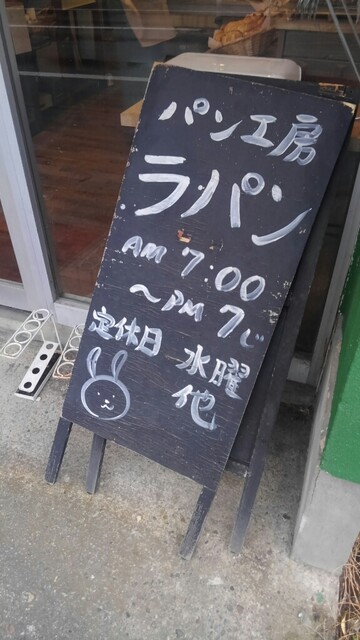 パン工房
ラパン
AM 7:00
〜PM 7じ
定休日 水曜
他